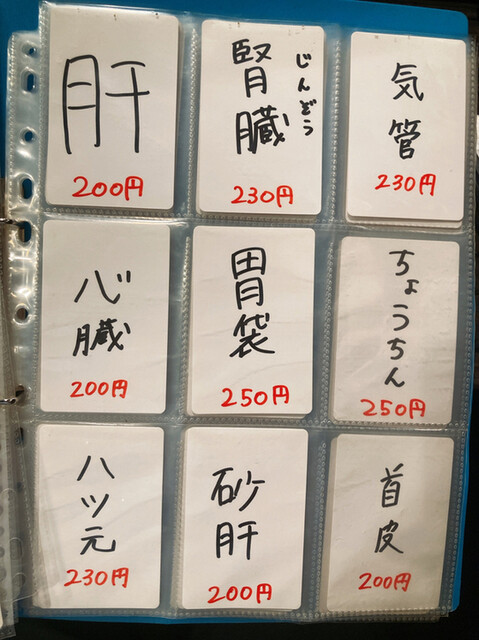 肝
200円
腎臓
じんぞう
230円
気管
230円
心臓
200円
胃袋
250円
ちょうちん
250円
ハツ元
230円
砂肝
200円
首皮
200円